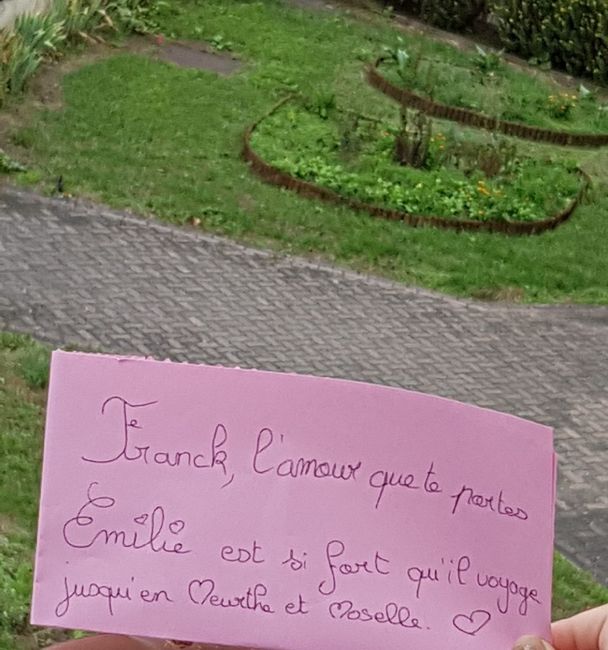 Franck, l'amour que te portes
Emilie est si fort qu'il voyage
jusqu'en Meurthe et Moselle. ♡